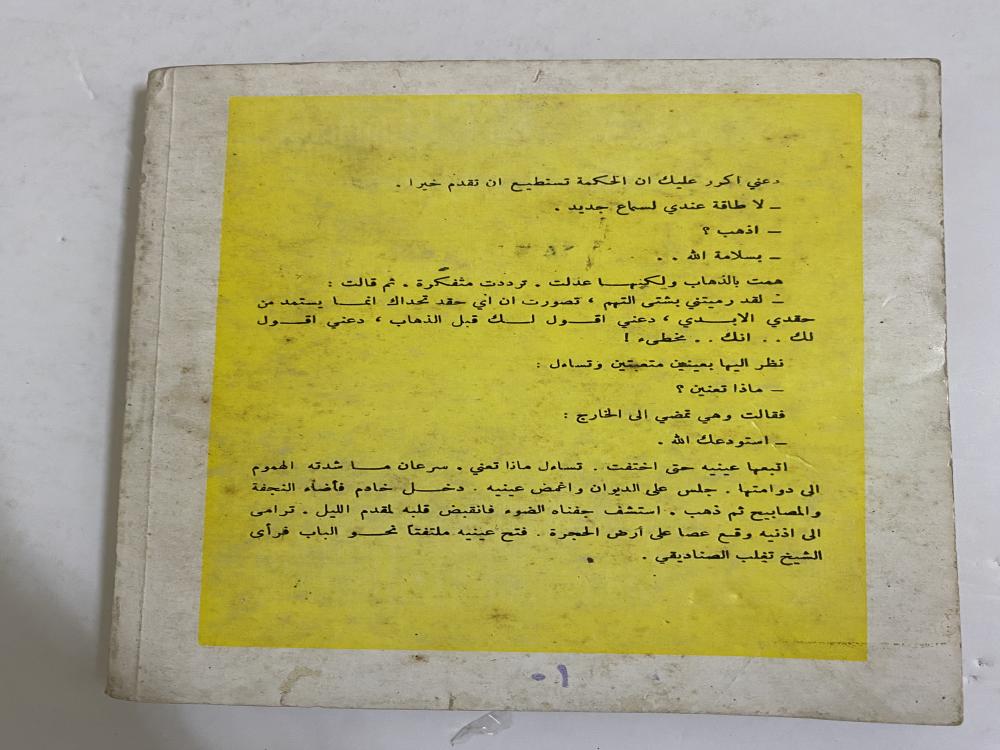 دعني اكرر عليك ان الحكمة تستطيع ان تقدم خيرا .
ـ لا طاقة عندي لسماع جديد .
ـ اذهب ؟
ـ بسلامة الله . .
همت بالذهاب ولكنهـا عدلت . ترددت متفكرة . ثم قالت :
ـ لقد رميتني بشتى التهم ، تصورت ان اي حقد تحداك انمـا يستمد من
حقدي الابـدي ، دعني اقـول لـك قبل الذهاب ، دعني اقـول
لك . . انك . . مخطىء !
نظر اليها بعينين متعبتين وتساءل :
ـ ماذا تعنين ؟
فقالت وهي تمضي الى الخارج :
ـ استودعك الله .
اتبعها عينيه حتى اختفت . تساءل ماذا تعني . سرعان مـا شدته الهموم
الى دوامتها . جلس على الديوان واغمض عينيه . دخـل خادم فأضاء النجفة
والمصابيح ثم ذهب . استشف جفناه الضوء فانقبض قلبه لمقدم الليل . ترامى
الى اذنيه وقـع عصا على أرض الحجرة . فتح عينيه ملتفتاً نحـو الباب فرأى
الشيخ تغلب الصناديقي .